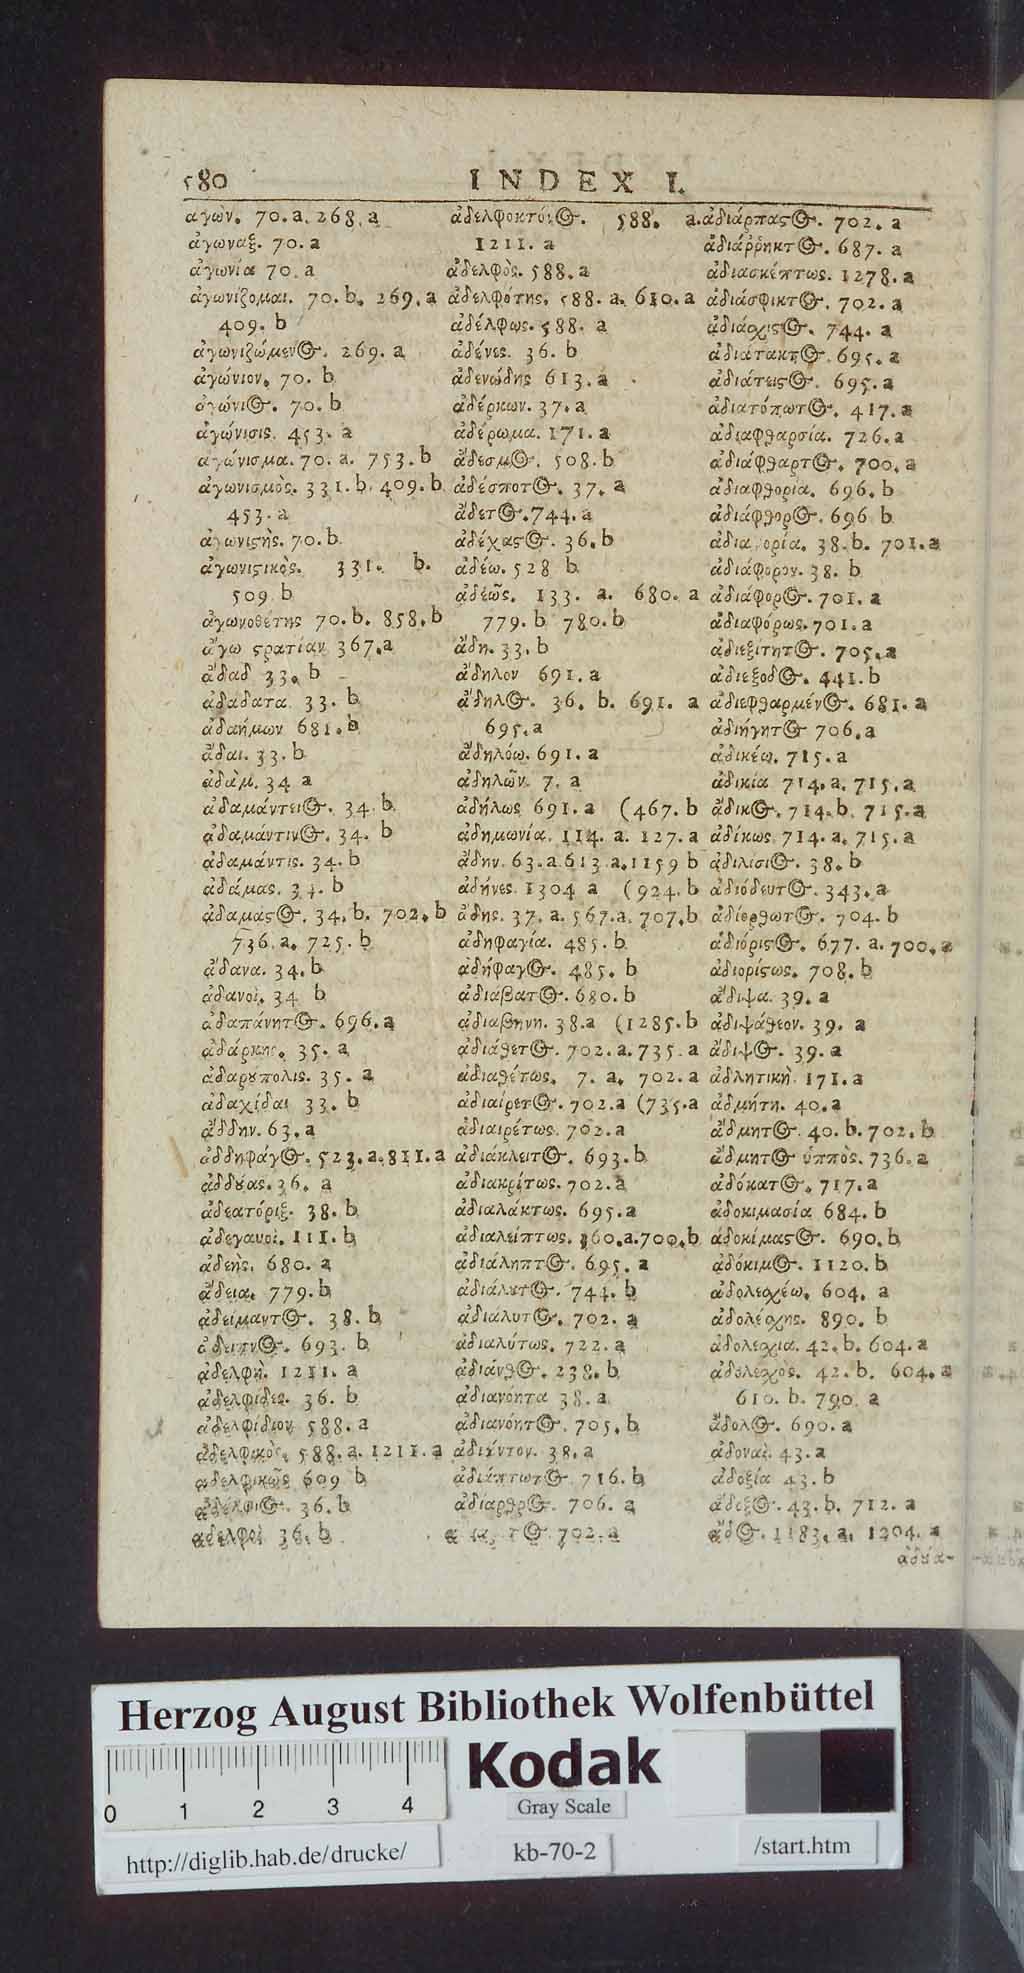 580 INDEX I.
ἀγὼν. 70. a. 268. a
ἀγωναξ. 70. a
ἀγωνία 70. a
ἀγωνίζομαι. 70. b. 269. a
409. b
ἀγωνιζώμενος. 269. a
ἀγώνιον. 70. b
ἀγώνιος. 70. b
ἀγώνισις. 453. a
ἀγώνισμα. 70. a. 753. b
ἀγωνισμὸς. 331. b. 409. b
453. a
ἀγωνιϛὴς. 70. b
ἀγωνιϛικὸς. 331. b.
509 b
ἀγωνοθέτης 70. b. 858. b
ἄγω ϛρατίαν 367. a
ἄδαδ 33. b
ἀδαδατα 33. b
ἀδαήμων 681. b
ἄδαι. 33. b
ἀδὰμ. 34 a
ἀδαμάντειος. 34. b
ἀδαμάντινος. 34. b
ἀδαμάντις. 34. b
ἀδάμας. 34. b
ἀδαμαϛος. 34. b. 702. b
736. a. 725. b
ἄδανα. 34. b
ἀδανοὶ. 34 b
ἀδαπάνητος. 696. a
ἀδάρκης. 35. a
ἀδαρȣπολις. 35. a
ἀδαχίδαι 33. b
ἄδδην. 63. a
ἀδδηφάγος. 523. a. 811. a
ἀδδȣας. 36. a
ἀδεατόριξ. 38. b
ἀδεγανοὶ. 111. b
ἀδεὴς. 680. a
ἄδεια. 779. b
ἀδείμαντος. 38. b
ἄδειπνος. 693. b
ἀδελφὴ. 1211. a
ἀδελφιδες. 36. b
ἀδελφίδιον 588. a
ἀδελφικὸς. 588. a. 1211. a
ἀδελφικῶς 609 b
ἀδέλφιος. 36. b
ἀδελφοὶ 36. b
ἀδελφοκτόνος. 588. a.
1211. a
ἀδελφὸς. 588. a
ἀδελφότης. 588. a. 610. a
ἀδέλφως. 588. a
ἀδένες. 36. b
ἀδενώδης 613. a
ἀδέρκων. 37. a
ἀδέρωμα. 171. a
ἄδεσμος. 508. b
ἀδέσποτος. 37. a
ἄδετος. 744. a
ἀδέχαϛος. 36. b
ἀδέω. 528 b
ἀδεῶς. 133. a. 680. a
779. b 780. b
ἄδη. 33. b
ἄδηλον 691. a
ἄδηλος. 36. b. 691. a
695. a
ἀδηλόω. 691. a
ἀδηλῶν. 7. a
ἀδήλως 691. a (467. b
ἀδημωνία. 114. a. 127. a
ἄδην. 63. a. 613. a. 1159 b
ἀδήνες. 1304 a (924. b
ἄδης. 37. a. 567. a. 707. b
ἀδηφαγία. 485. b
ἀδήφαγος. 485. b
ἀδιάβατος. 680. b
ἀδιαβηνη. 38. a (1285. b
ἀδιάθετος. 702. a. 735. a
ἀδιαθέτως. 7. a. 702. a
ἀδιαίρετος. 702. a (735. a
ἀδιαιρέτως. 702. a
ἀδιάκλειτος. 693. b
ἀδιακρίτως. 702. a
ἀδιαλάκτως. 695. a
ἀδιαλείπτως. 360. a. 700. b
ἀδιάληπτος. 695. a
ἀδιάλετος. 744. b
ἀδιάλυτος. 702. a
ἀδιαλύτως. 722. a
ἀδιάνθος. 238. b
ἀδιανόητα 38. a
ἀδιανόητος. 705. b
38. a
ἀδιάπτωτος 716. b
ἀδίαρθρος. 706. a
702. a
ἀδιάρπαϛος. 702. a
ἀδιάῤῥηκτος. 687. a
ἀδιασκέπτως. 1278. a
ἀδιάσφικτος. 702. a
ἀδιάσχιϛος. 744. a
ἀδιάτακτος. 695. a
695. a
ἀδιατόπωτος. 417. a
ἀδιαφθαρσία. 726. a
ἀδιάφθαρτος. 700. a
ἀδιαφθορία. 696. b
ἀδιάφθορος. 696 b
ἀδιαφορία. 38. b. 701. a
ἀδιάφορον. 38. b
ἀδιάφορος. 701. a
ἀδιαφόρως. 701. a
ἀδιεξίτητος. 705. a
ἀδιέξοδος. 441. b
ἀδιεφθαρμένος. 681. a
ἀδιήγητος 706. a
ἀδικέω. 715. a
ἀδικία 714. a. 715. a
ἄδικος. 714. b. 715. a
ἀδίκως. 714. a. 715. a
38. b
ἀδιόδευτος. 343. a
ἀδίορθωτος. 704. b
ἀδιόριϛος. 677. a. 700. a
ἀδιορίϛως. 708. b
ἄδιψα. 39. a
ἀδιψάθεον. 39. a
ἄδιψος. 39. a
ἀδλητικὴ. 171. a
ἀδμήτη. 40. a
ἄδμητος 40. b. 702. b
ἄδμητος ὑππὸς. 736. a
ἀδόκατος. 717. a
ἀδοκιμασία 684. b
ἀδοκίμαϛος. 690. b
ἀδόκιμος. 1120. b
ἀδολεσχέω. 604. a
ἀδολέσχης. 890. b
ἀδολεσχια. 42. b. 604. a
ἀδολεσχὸς. 42. b. 604. a
610. b. 790. a
ἄδολος. 690. a
ἀδοναὶ. 43. a
ἀδοξία 43. b
ἄδοξος. 43. b. 712. a
ἄδος. 1183. a. 1204. a
ἀδȣα-
Herzog August Bibliothek Wolfenbüttel
0 1 2 3 4
Kodak
Gray Scale
http://diglib.hab.de/drucke/
kb-70-2
/start.htm